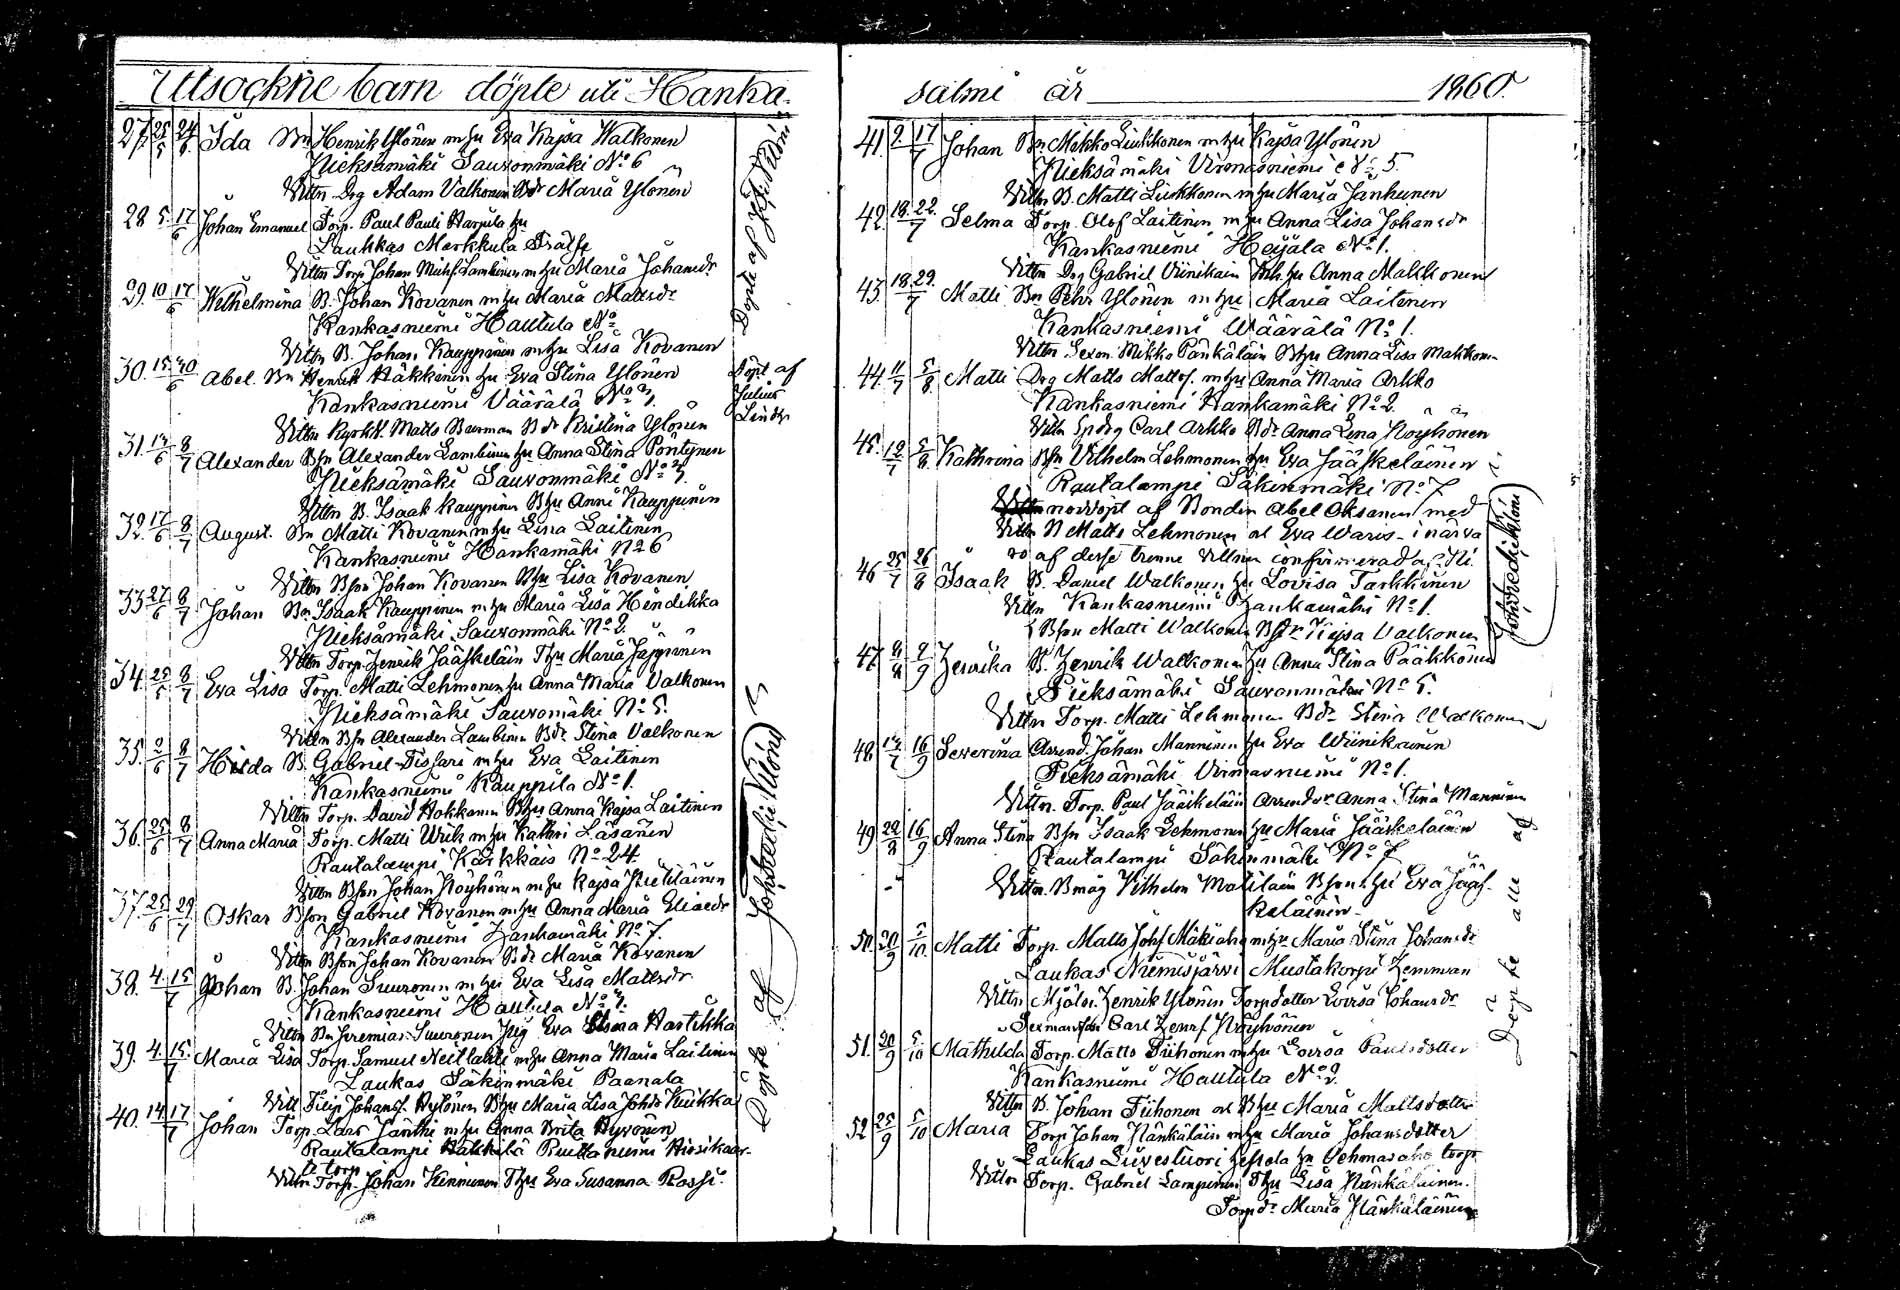 Utsockne barn döpte uti Hanka-
27. 25/5 24/6 Ida Bn Henrik Ylönen m hu Eva Kajsa Walkonen
Pieksämäki Sauvonmäki No 6
Vittn Drg Adam Valkonen Bdr Maria Ylönen
28 5/6 17/6 Johan Emanuel Torp. Paul Pauli Harpula hu
Laukkas Markkula
Vittn Torp Johan Michs. Lambinen m hu Maria Johansdr
29. 10/6 17/6 Wilhelmina B. Johan Kovanen m hu Maria Mattsdr
Kankasniemi Hautula No
Vittn B. Johan Kauppinen m hu Lisa Kovanen
30. 15/6 Abel Bn Henrik Häkkinen hu Eva Stina Ylönen
Kankasniemi Väärälä No 1.
Vittn Matts Barman Bdr Kristina Ylönen
31. 13/6 8/7 Alexander Bsn Alexander Lambinen hu Anna Stina Pöntynen
Pieksämäki Sauvonmäki No 7.
Vittn B. Isaak Kauppinen Bhu Anna Kauppinen
32. 17/6 8/7 August. Bn Matti Kovanen m hu Lena Laitinen
Kankasniemi Hankamäki No 6
Vittn Bson Johan Kovanen Bhu Lisa Kovanen
33. 27/6 8/7 Johan Bn Isaak Kauppinen m hu Maria Lisa Hindikka
Pieksämäki Sauvonmäki No 2.
Vittn Torp. Henrik Jääskeläin Thu Maria Jäppinen
34. 25/5 8/7 Eva Lisa Torp. Matti Lehmonen hu Anna Maria Valkonen
Pieksämäki Sauvomäki No 5.
Vittn Bsn Alexander Lambinen Bdr Stina Valkonen
35. 2/6 8/7 Hilda B Gabriel Tissari m hu Eva Laitinen
Kankasniemi Kauppila No 1.
Vittn Torp. David Hokkanen Bhu Anna Kajsa Laitinen
36. 25/6 8/7 Anna Maria Torp. Matti Wirk m hu Kathri Läsänen
Rautalampi Kärkkäis No 24.
Vittn Bson Johan Pöyhönen m hu Kajsa Pietiläinen
37. 25/6 29/7 Oskar Bson Gabriel Kovanen m hu Anna Maria Eliaedr
Kankasniemi Hankamäki No 7
Vittn Bson Johan Kovanen Bdr Maria Kovanen
38. 4/7 15/7 Johan B. Johan Suuronen m hu Eva Lisa Mattsdr
Kankasniemi Hautula No 1.
Vittn Bn Jeremias Suuronen Eva Stina Hartikka
39. 4/7 15/7 Maria Lisa Torp. Samuel Neitlahti m hu Anna Maria Laitinen
Laukas Säkinmäki Paanala
Vitt Filip Johanss. Hytönen Bhu Maria Lisa Johdr Kuikka
40. 14/7 17/7 Johan Torp. Lars Jänthi m hu Anna Brita Hyvönen
Rautalampi Häkkilä
te torp
Vittn Torp. Johan Kinnunen Thu Eva Susanna Rossi.
Döpt af Julius Lindr
Döpte af Joh. Bened. Ylönen
salmi år 1860.
41. 2/7 17/7 Johan Bn Mikko Liukkonen m hu Kajsa Ylönen
Pieksämäki Virmasniemi No 5.
Vittn B. Matti Liukkonen m hu Maria Janhunen
42. 18/7 22/7 Selma Torp. Olof Laitinen m hu Anna Lisa Johansdr
Kankasniemi Heijälä No 1.
Vittn Drg Gabriel Viinikain hu Anna Makkonen
43. 18/7 29/7 Matti Bn Pehr Ylönen m hu Maria Laitinen
Kankasniemi Wäärälä No 1.
Vittn Sexm Mikko Pänkäläin Bhu Anna Lisa Makkonen
44. 11/7 5/8 Matti Drg Matts Mattss. m hu Anna Maria Arkko
Kankasniemi Hankamäki No 2.
Vittn Carl Arkko Bdr Anna Lena Pöyhönen
45. 12/7 5/8 Kathrina Bsn Vilhelm Lehmonen hu Eva Jääskeläinen
Rautalampi Säkinmäki No 7
nöddöpt af Bonden Abel Oksanen med
Vittn B Matts Lehmonen ok Eva Waris - i närva
ro af desse trenne vittnen confirmerad
46 25/7 26/8 Isaak B. Daniel Walkonen hu Lovisa Tarkkinen
Vittn Kankasniemi Hankamäki No 1.
Bson Matti Walkonen Bdr Kajsa Valkonen
47. 8/8 2/9 Henrika B. Henrik Walkonen hu Anna Stina Pääkkönen
Pieksämäki Sauvonmäki No 5.
Vittn Torp. Matti Lehmonen Bdr Stina Walkonen
48. 13/7 16/9 Severina Arrend. Johan Manninen hu Eva Wiinikainen
Pieksämäki Virmasniemi No 1.
Vittn. Torp. Paul Jääskeläin Arrenddr Anna Stina Manninen
49 22/8 16/9 Anna Stina Bsn Isaak Lehmonen hu Maria Jääskeläinen
Rautalampi Säkinmäki No 7
Vittn. Bmåg Vilhelm Matiläin Bson hu Eva Jääs-
keläinen
50. 20/9 5/10 Matti Torp. Matts Johs. Mäkiaho m hu Maria Stina Johansdr
Laukas Niemisjärvi Mustakorpi Hemman
Vittn Mjöln. Henrik Ylönen Torpdotter Lovisa Johansdr
Sexmanson Carl Henr. Pöyhönen
51. 20/9 5/10 Mathilda Torp. Matts Tiihonen m hu Lovisa Paulsdotter
Kankasniemi Hautula No 2.
Vittn B. Johan Tiihonen ok Bhu Maria Mattsdotter
52 25/9 5/10 Maria Torp Johan Pänkäläin m hu Maria Johansdotter
Laukas Lievestuori Lehmasaho torp
Vittn Torp. Gabriel Lampinen Thu Lisa Pänkäläinen.
Torpdr Maria Pänkäläinen
Döpte alle af Joh. Bened. Ylönen